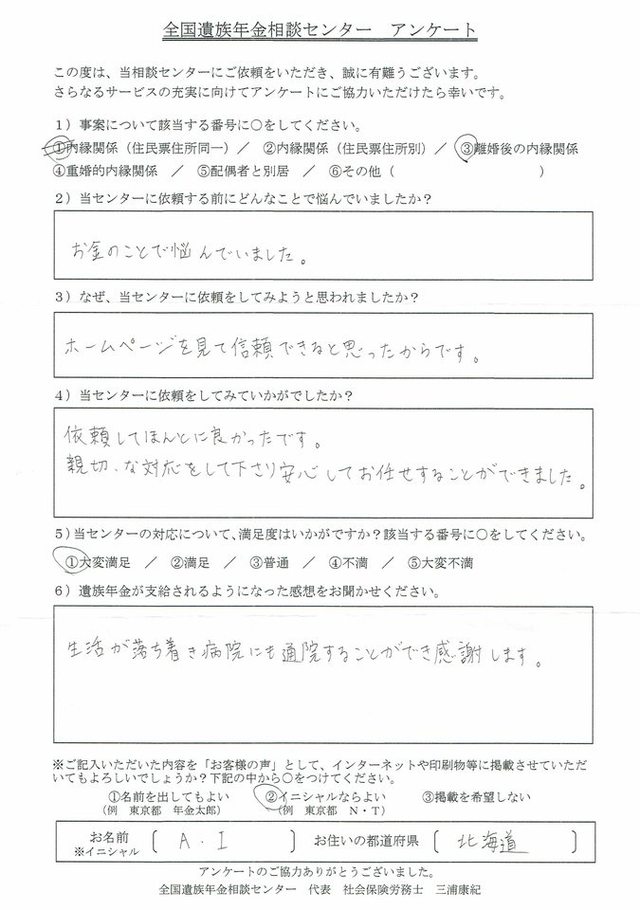 全国遺族年金相談センター　アンケート
この度は、当相談センターにご依頼をいただき、誠に有難うございます。
さらなるサービスの充実に向けてアンケートにご協力いただけたら幸いです。
1）事案について該当する番号に○をしてください。
①内縁関係（住民票住所同一）／　②内縁関係（住民票住所別）／　③離婚後の内縁関係
④重婚的内縁関係　／　⑤配偶者と別居　／　⑥その他（　　　　　　　　　　）
2）当センターに依頼する前にどんなことで悩んでいましたか？
お金のことで悩んでいました。
3）なぜ、当センターに依頼をしてみようと思われましたか？
ホームページを見て信頼できると思ったからです。
4）当センターに依頼をしてみていかがでしたか？
依頼してほんとに良かったです。
親切、な対応をして下さり安心してお任せすることができました。
5）当センターの対応について、満足度はいかがですか？該当する番号に○をしてください。
①大変満足　／　②満足　／　③普通　／　④不満　／　⑤大変不満
6）遺族年金が支給されるようになった感想をお聞かせください。
生活が落ち着き病院にも通院することができ感謝します。
※ご記入いただいた内容を「お客様の声」として、インターネットや印刷物等に掲載させていただ
いてもよろしいでしょうか？下記の中から○をつけてください。
①名前を出してもよい　　②イニシャルならよい　　③掲載を希望しない
（例　東京都　年金太郎）　　（例　東京都　N・T）
お名前　〔　A．I　〕　お住いの都道府県　〔　北海道　〕
※イニシャル
アンケートのご協力ありがとうございました。
全国遺族年金相談センター　代表　社会保険労務士　三浦康紀